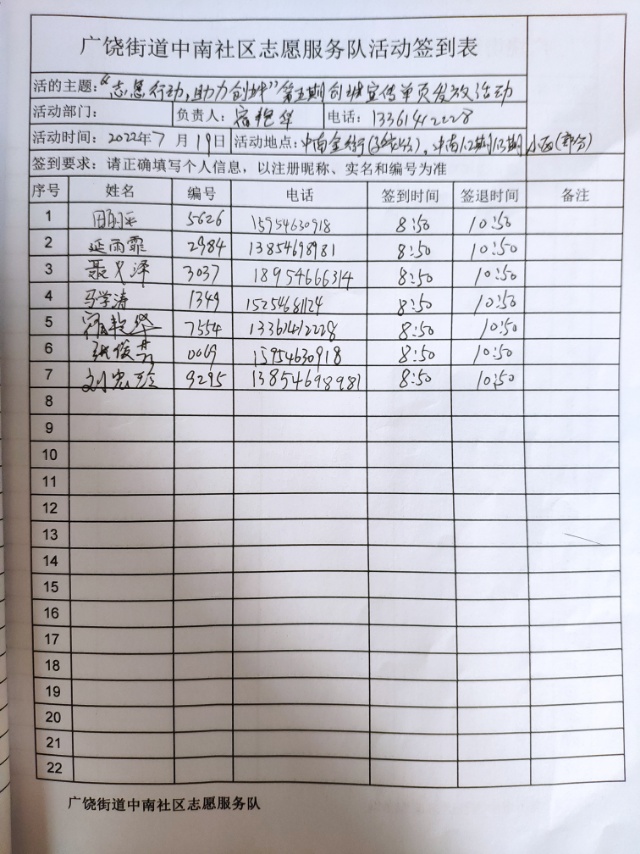 广饶街道中南社区志愿服务队活动签到表
活的主题：“志愿行动，助力创城”第五期创城宣传单页发放活动
活动部门： 负责人：宿艳华 电话：13361412228
活动时间：2022年7月19日 活动地点：中南金街，中南1.2期1.3期小区(部分)
签到要求：请正确填写个人信息，以注册昵称、实名和编号为准
序号 姓名 编号 电话 签到时间 签退时间 备注
1 5626 15954630918 8:50 10:50
2 延雨霏 2984 13854698981 8:50 10:50
3 聂 泽 3037 18954666314 8:50 10:50
4 马学涛 1349 15254681124 8:50 10:50
5 宿艳华 7554 13361412228 8:50 10:50
6 张俊芳 0069 15954630918 8:50 10:50
7 刘宏玲 9295 13854698981 8:50 10:50
8
9
10
11
12
13
14
15
16
17
18
19
20
21
22
广饶街道中南社区志愿服务队